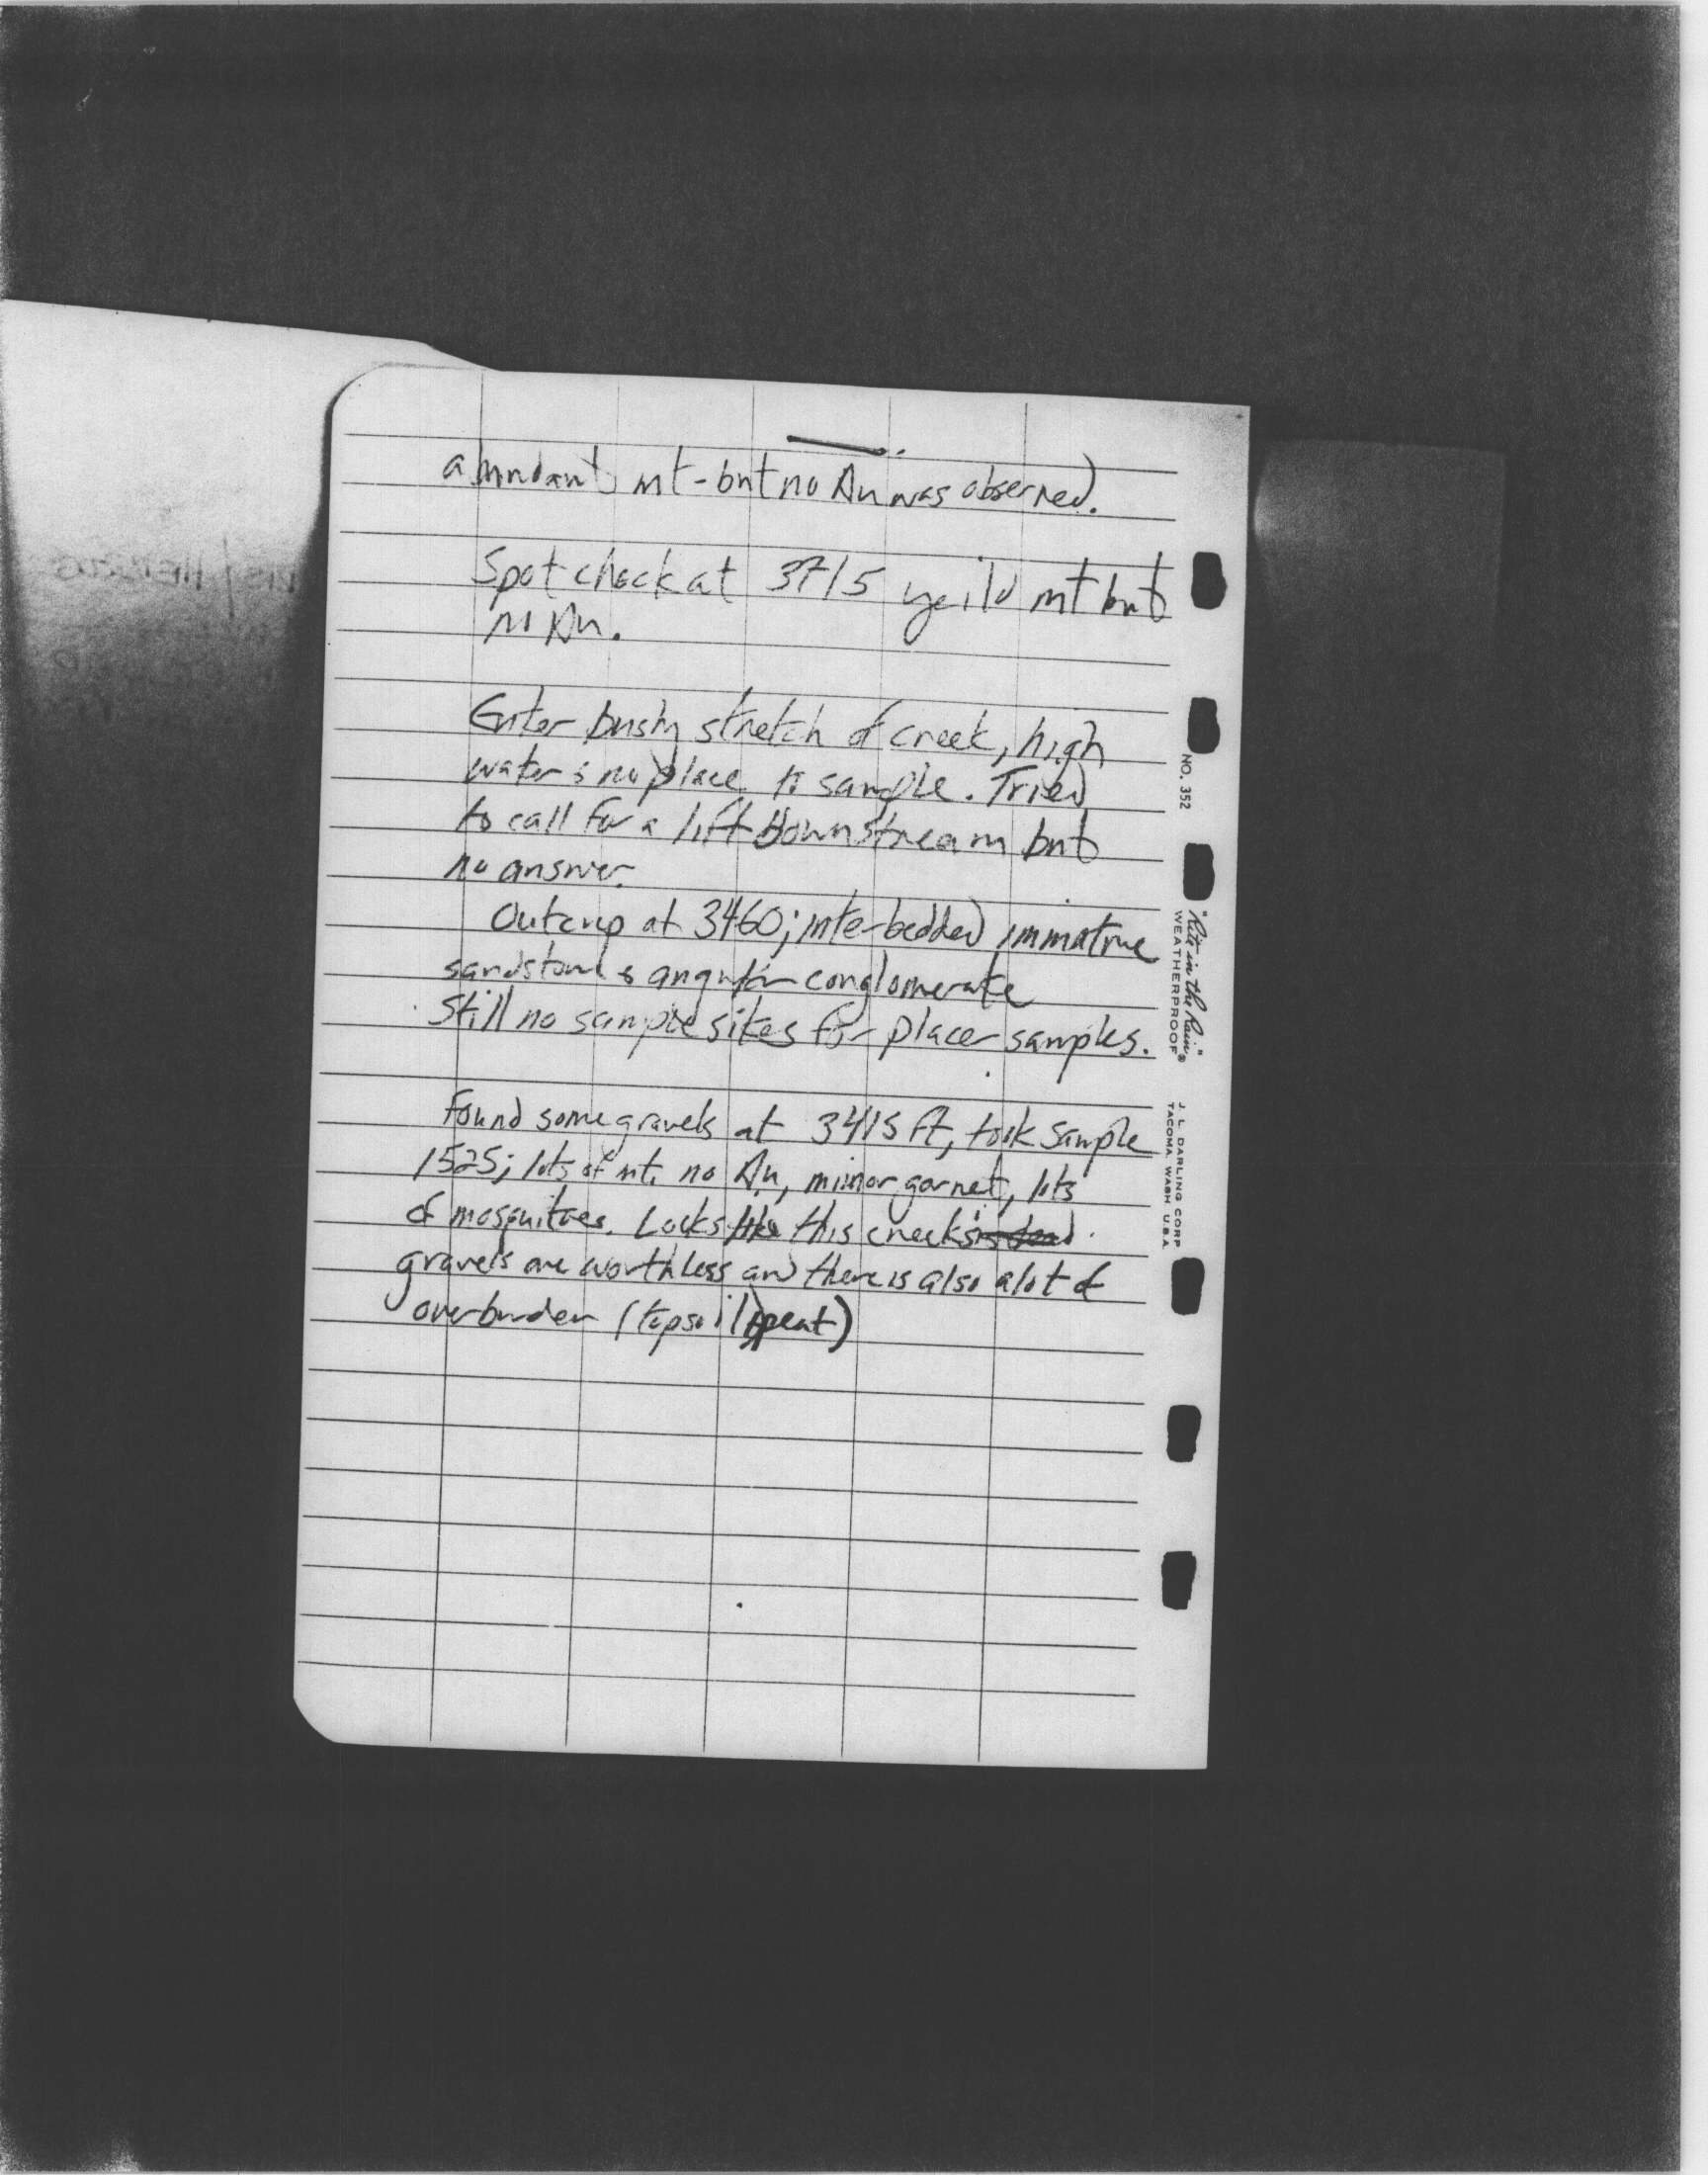 abundant mt - but no Au was observed.
Spot check at 3715 yeild mt but
no Au.
Enter bushy stretch of creek, high
water & no place to sample. Tried
to call for a lift downstream but
no answer.
Outcrop at 3460; interbedded immature
sandstone & angular conglomerate
Still no sample sites for placer samples.
Found some gravels at 3415 ft, took sample
1525; lots of mt. no Au, minor garnet, lots
of mosquitoes. Looks like this creek's
gravels are worthless and there is also alot of
overburden (topsoil, peat)
NO. 352
"Rite in the Rain"®
WEATHERPROOF
J. L. DARLING CORP
TACOMA, WASH U.S.A.